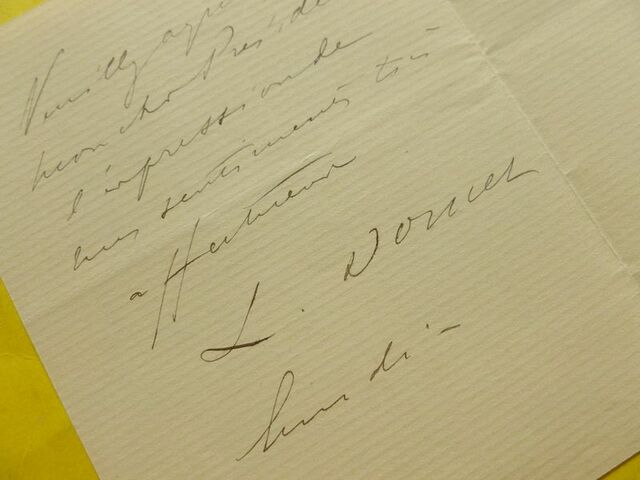 Veuillez agré
mon cher Préside
l'expression de
mes sentiments très
affectueux
L. Donnet
lundi -